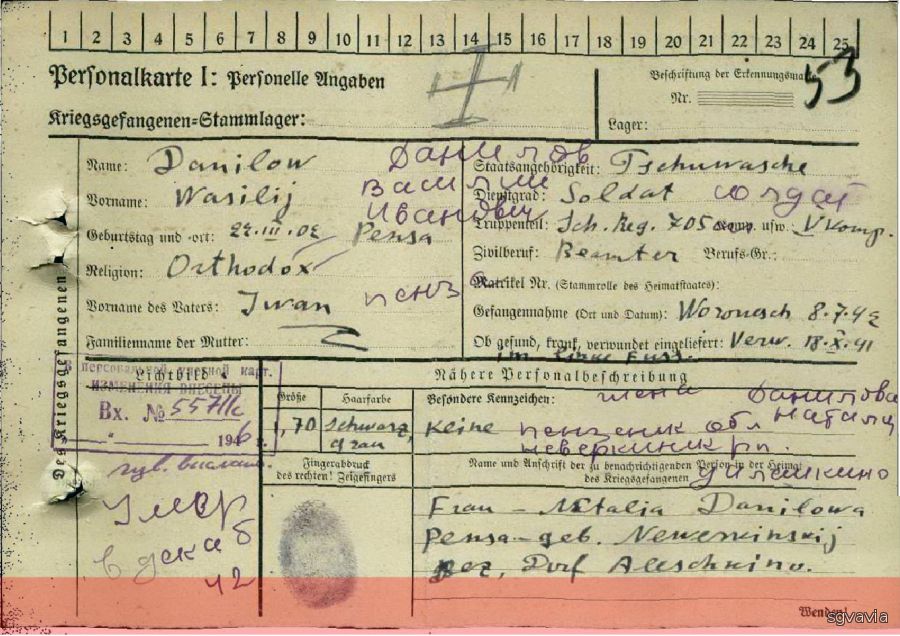 1 2 3 4 5 6 7 8 9 10 11 12 13 14 15 16 17 18 19 20 21 22 23 24 25
Personalkarte I: Personelle Angaben
Beschriftung der Erkennungsmarke
53
Nr.
Kriegsgefangenen=Stammlager:
Lager:
Des Kriegsgefangenen
Name: Danilow Данилов
Staatsangehörigkeit: Tschuwasche
Vorname: Wasilij Василий
Dienstgrad: Soldat солдат
Иванович
Truppenteil: Sch. Reg. 705 Komp. usw.: V Komp.
Geburtstag und -ort: 22.III.02 Pensa
Zivilberuf: Beamter Berufs-Gr.:
Religion: Orthodox
Matrikel Nr. (Stammrolle des Heimatstaates):
Vorname des Vaters: Iwan пенз
Gefangennahme (Ort und Datum): Woronesch 8.7.42
Familienname der Mutter:
Ob gesund, krank, verwundet eingeliefert: Verw. 18.X.41
im linke Fuss.
Lichtbild
персональной учетной карт.
ИЗМЕНЕНИЯ ВНЕСЕНЫ
Вх. №
194 г.
Умер
в декаб
42
Nähere Personalbeschreibung
Größe
Haarfarbe
1,70
schwarz, grau
Besondere Kennzeichen: жена Данилова
Наталия
Keine
обл
Fingerabdruck
des rechten! Zeigefingers
Name und Anschrift der zu benachrichtigenden Person in der Heimat
des Kriegsgefangenen
Frau – Natalia Danilowa
Pensa-geb. Newerkinskij
Dorf Aleschkino.
Wenden!
sgvavia